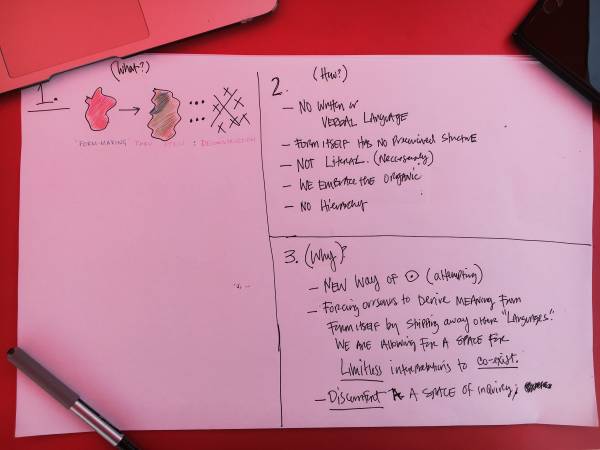 1.
(What?)
"FORM-MAKING" THRU ITSELF : DECONSTRUCTION
2. (How?)
– NO WRITTEN or
VERBAL LANGUAGE
– FORM ITSELF HAS NO Preconceived Structure
– NOT LITERAL. (Necessarily)
– WE EMBRACE THE ORGANIC
– NO Hierarchy
3. (Why)?
– NEW WAY OF (attempting)
– Forcing ourselves to Derive MEANING From
Form ITSELF by Stripping away other "LANGUAGES".
WE ARE Allowing FOR A SPACE FOR
Limitless interpretations to co-exist.
– Discomfort A SPACE OF inquiry;